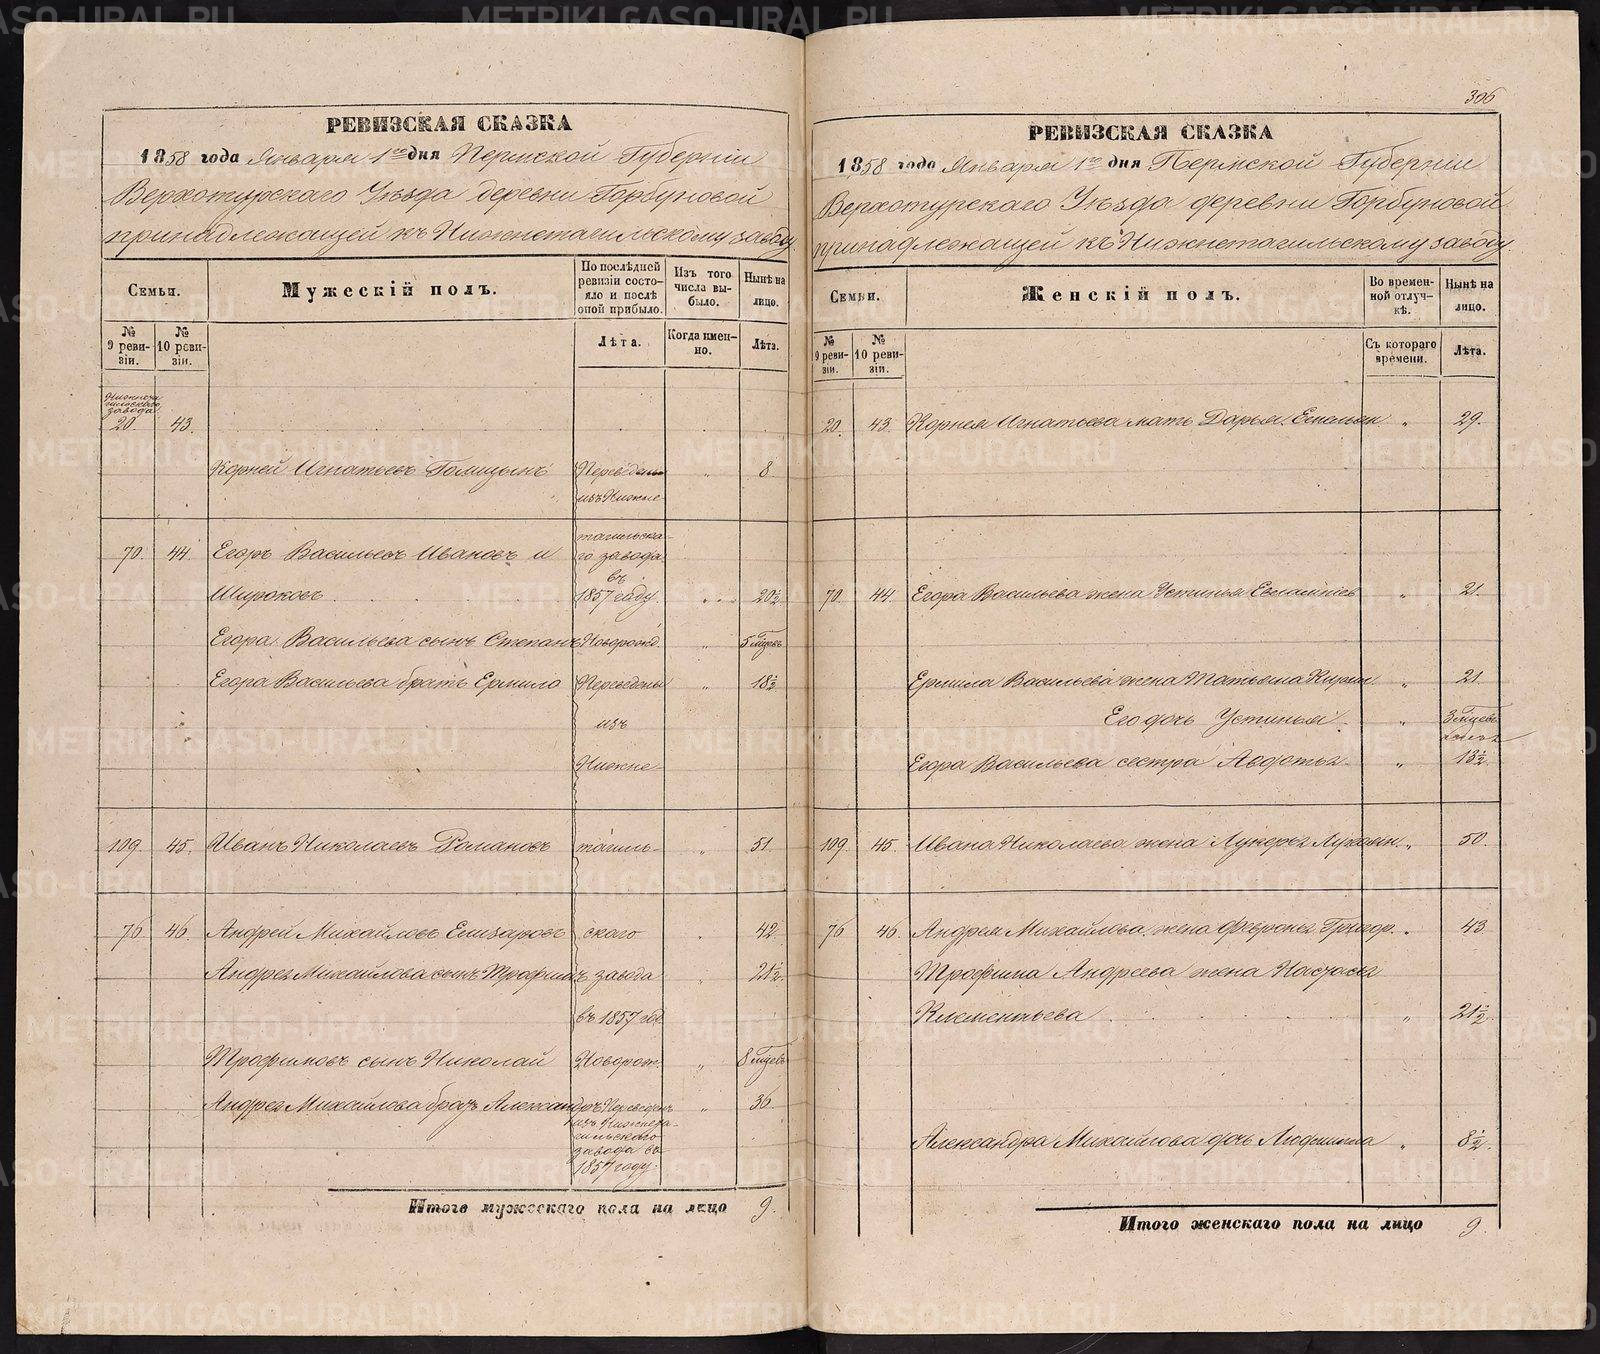 РЕВИЗСКАЯ СКАЗКА
1858 года Января 1го дня Пермской Губерніи
Верхотурскаго Уѣзда деревни Горбуновой
принадлежащей къ Нижнетагильскому заводу
Семьи.
Мужескій полъ.
По послѣдней ревизіи состояло и послѣ оной прибыло.
Изъ того числа выбыло.
Нынѣ на лицо.
№ 9 ревизіи.
№ 10 ревизіи.
Лѣта.
Когда именно.
Лѣта.
Нижнета
гильскаго
завода
20. 43.
Корней Игнатьевъ Голицынъ Переведены „ 8
изъ Нижне-
тагильска-
70. 44. Егоръ Васильевъ Ивановъ и го завода
въ
Широковъ 1857 году. 20½
Егора Васильева сынъ Степанъ Новорожд. „ 5 мѣсяцъ
Егора Васильева братъ Ермило Переведены „ 18½
изъ
Нижне-
109. 45. Иванъ Николаевъ Романовъ тагиль- „ 51
76 46. Андрей Михайловъ Елизаровъ скаго 42.
Андрея Михайлова сынъ Трофимъ завода 21½.
въ 1857 год.
Трофимовъ сынъ Николай Новорож. „ 8 мѣсяцъ
Андрея Михайлова братъ Александръ Переведенъ „ 36.
изъ Нижнета-
гильскаго
завода въ
1857 году.
Итого мужескаго пола на лицо 9.
306
РЕВИЗСКАЯ СКАЗКА
1858 года Января 1го дня Пермской Губерніи
Верхотурскаго Уѣзда деревни Горбуновой
принадлежащей къ Нижнетагильскому заводу
Семьи.
Женскій полъ.
Во временной отлучкѣ.
Нынѣ на лицо.
№ 9 ревизіи.
№ 10 ревизіи.
Съ котораго времени.
Лѣта.
20. 43. Корнея Игнатьева мать Дарья Емельян „ 29.
70. 44. Егора Васильева жена Устинья Евлампіев „ 21.
Ермила Васильева жена Татьяна Кирил. „ 21.
Его дочь Устинья. „ 3 мѣсяцъ
Егора Васильева сестра Авдотья „ 13½.
109. 45. Ивана Николаева жена Лукерья „ 50.
76 46. Андрея Михайлова жена Февронья Григор. „ 43
Трофима Андреева жена Настасья
Клементьева „ 21½.
Александра Михайлова дочь Людмила „ 8½.
Итого женскаго пола на лицо 9
METRIKI.GASO-URAL.RU